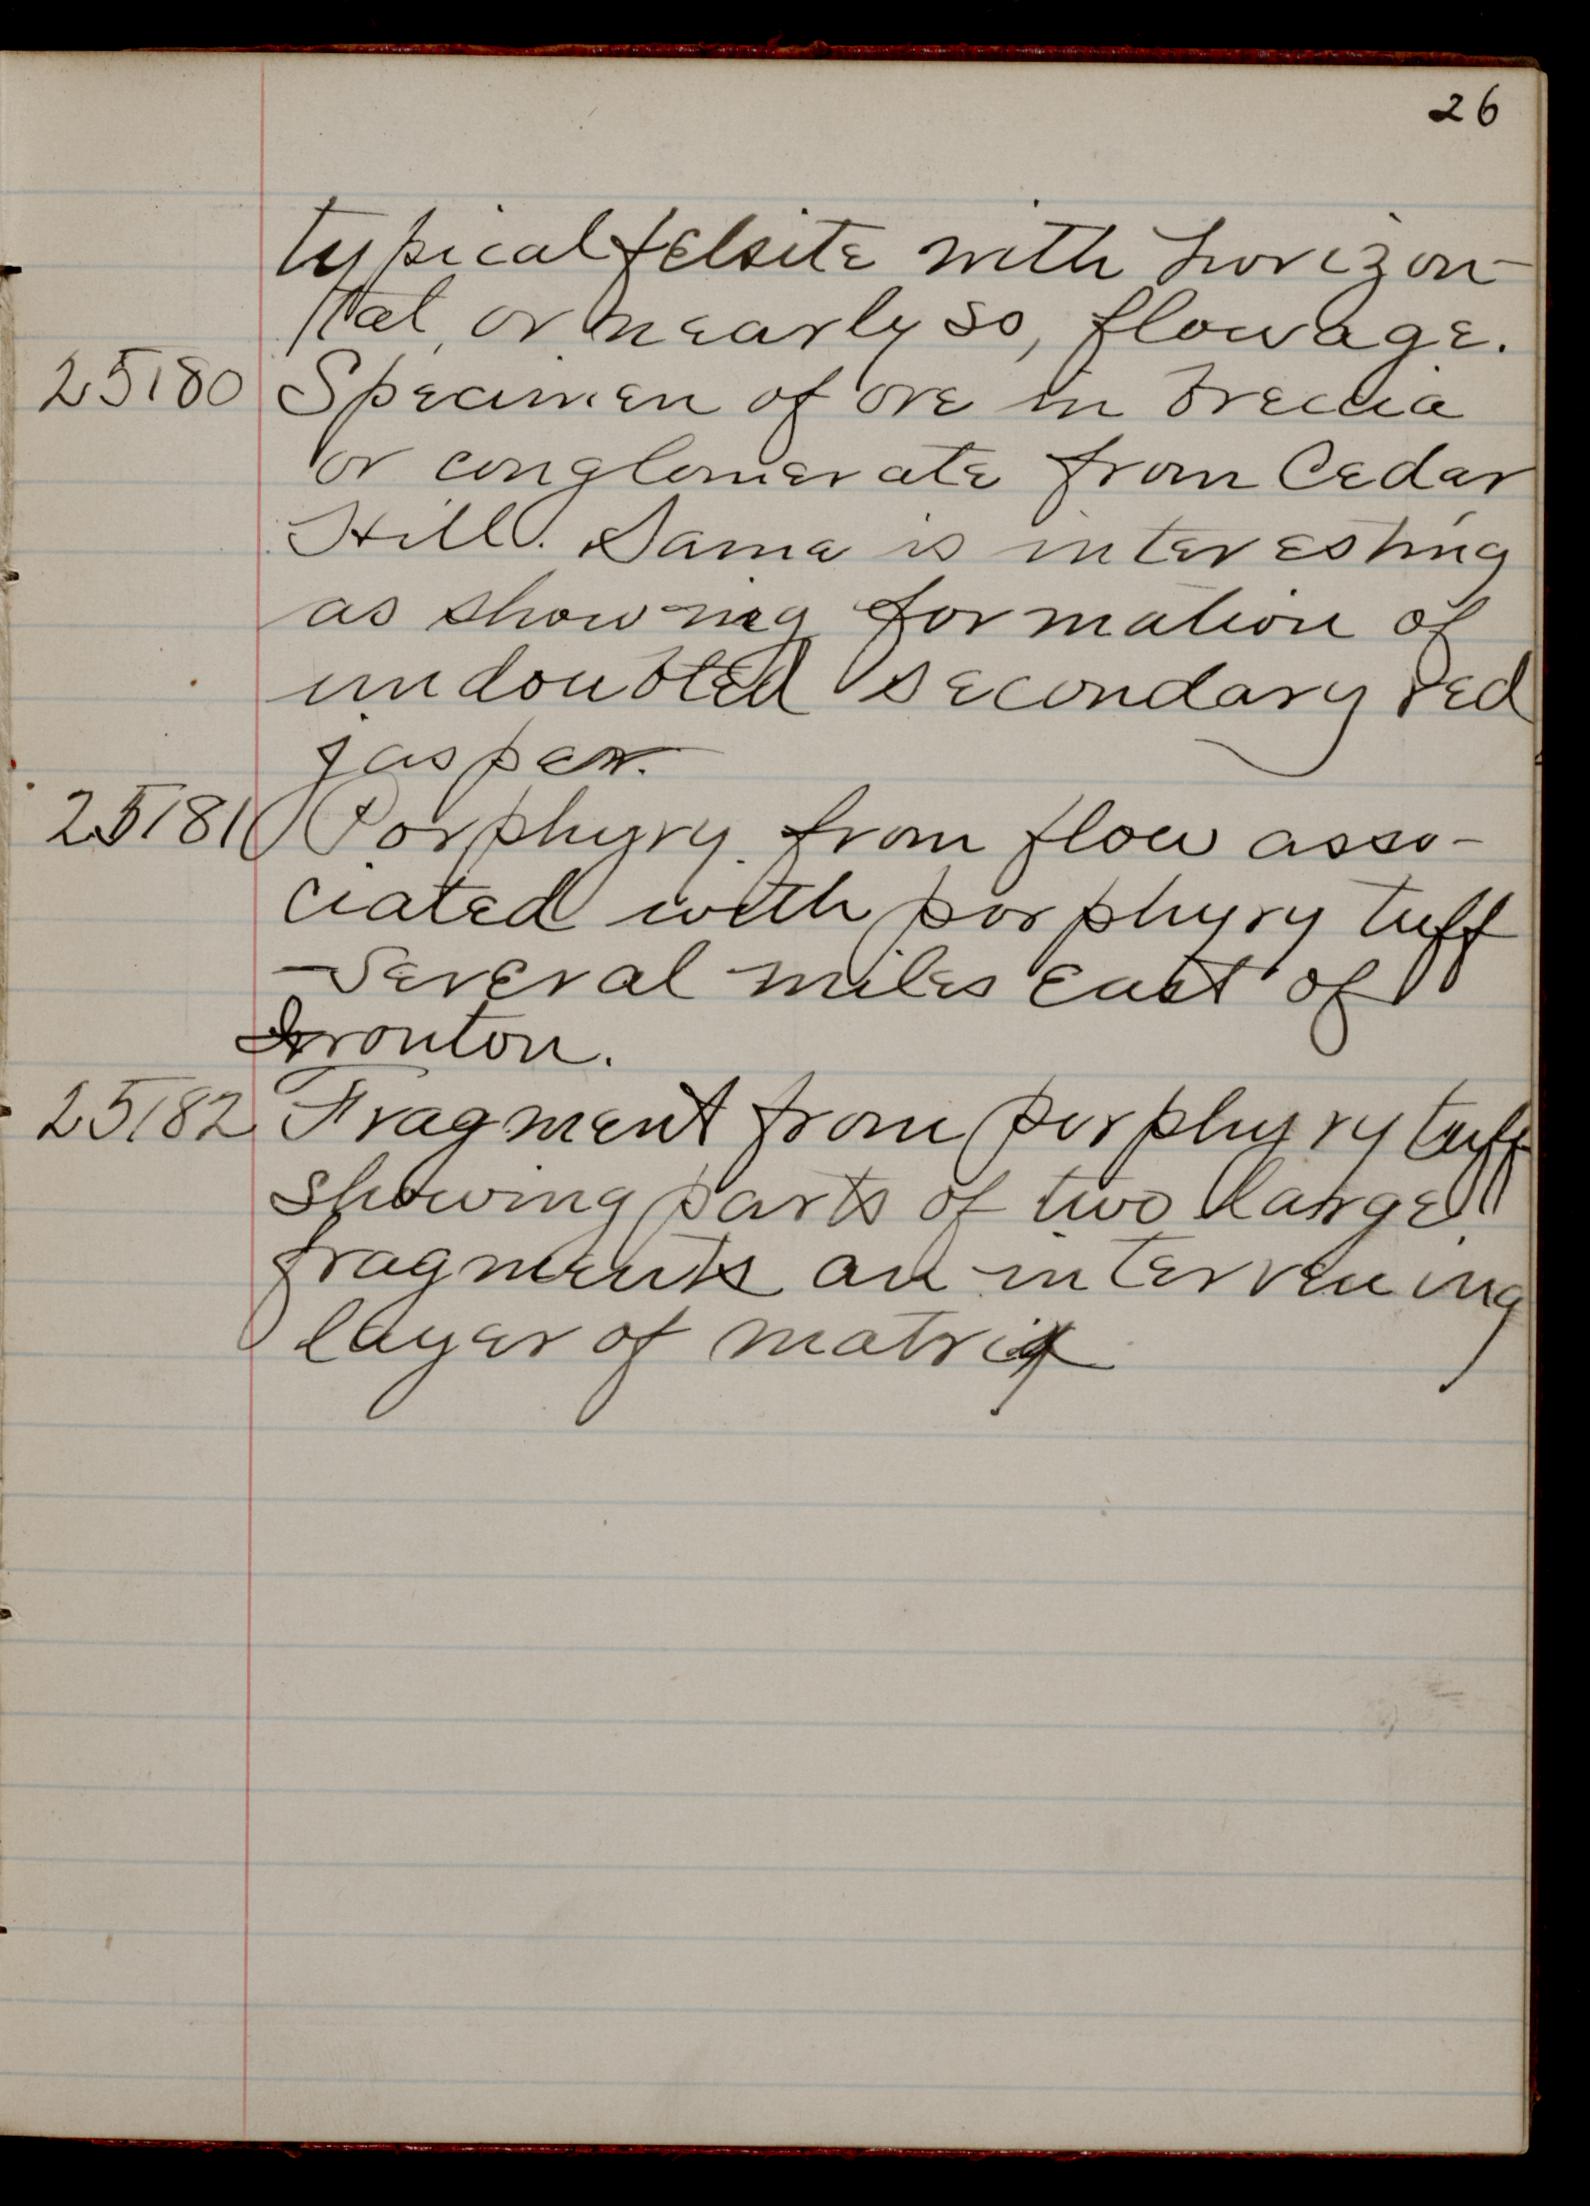 26
typical felsite with horizon-
tal, or nearly so, flowage.
25180 Specimen of ore in breccia
or conglomerate from Cedar
Hill. Same is interesting
as showing formation of
undoubted secondary red
jasper.
25181 Porphyry from flow asso-
ciated with porphyry tuff
several miles east of
Ironton.
25182 Fragment from porphyry tuff
showing parts of two large
fragments an intervening
layer of matrix